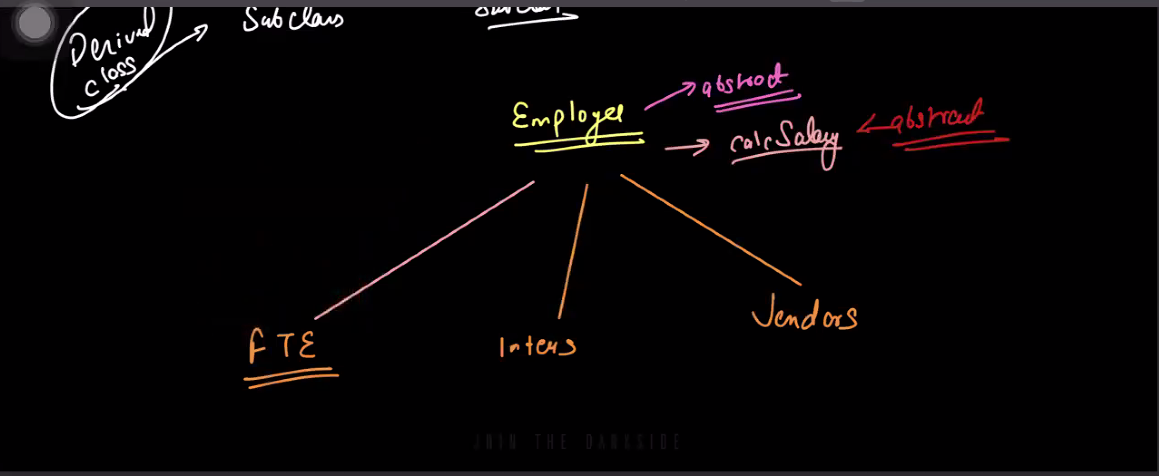 Derived
class
Subclass
Employee
abstract
calcSalary
abstract
FTE
Inters
Vendors
JOIN THE DARKSIDE